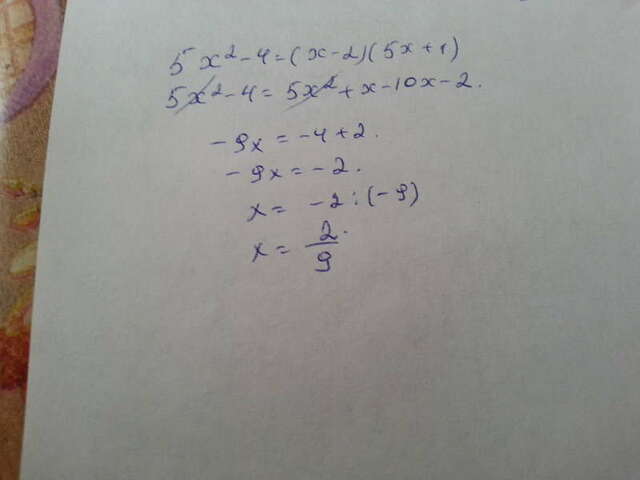 5x²-4=(x-2)(5x+1)
5x²-4=5x²+x-10x-2.
-9x=-4+2.
-9x=-2.
x= -2:(-9)
x= 2/9.